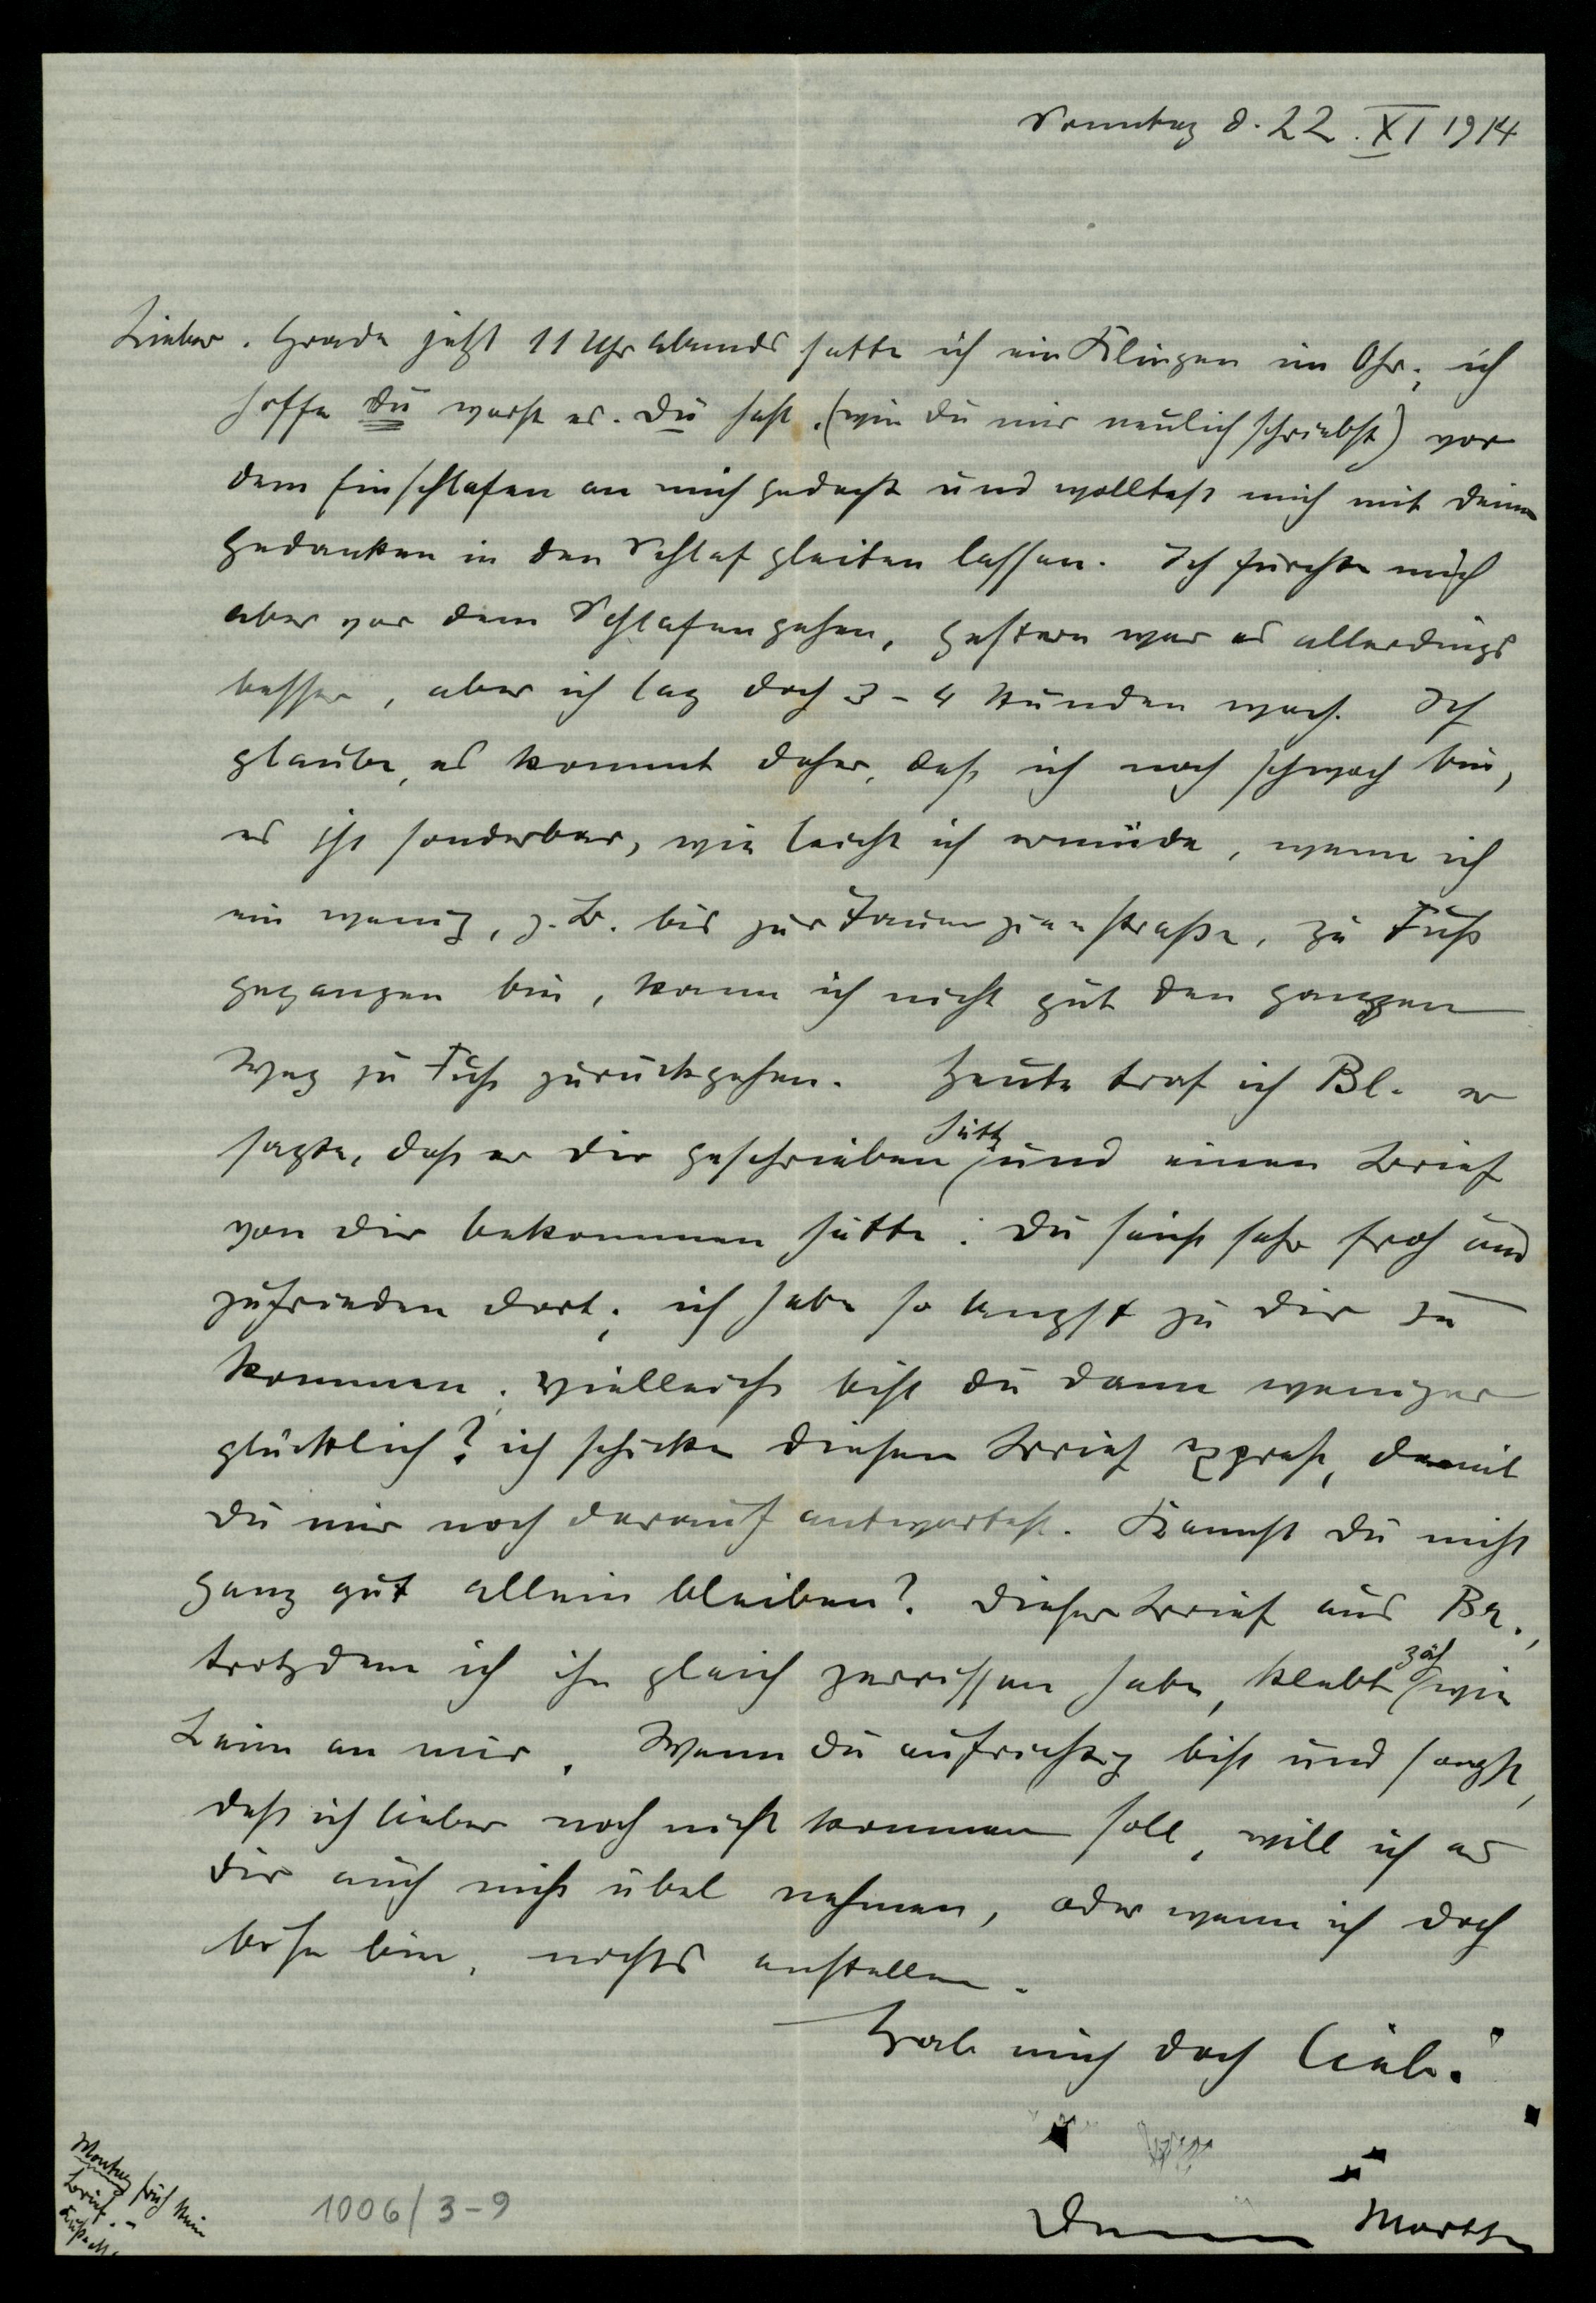 Sonntag d. 22. XI 1914
Lieber. Grade jetzt 11 Uhr abends hatte ich ein Klingen im Ohr; ich
hoffe du warst es. Du hast (wie du mir neulich schriebst) vor
dem Einschlafen an mich gedacht und wolltest mich mit deinen
Gedanken in den Schlaf gleiten lassen. Ich fürchte mich
aber vor dem Schlafengehen, gestern war es allerdings
besser, aber ich lag doch 3-4 Stunden wach. Ich
glaube, es kommt daher, daß ich noch schwach bin,
es ist sonderbar, wie leicht ich ermüde, wenn ich
ein wenig, z. B. bis zur Tauenzienstraße, zu Fuß
gegangen bin, kann ich nicht gut den ganzen
Weg zu Fuß zurückgehen. Heute traf ich Bl. er
sagte, daß er dir geschrieben hätte und einen Brief
von dir bekommen hätte: du seist sehr froh und
zufrieden dort; ich habe so Angst zu dir zu
kommen, vielleicht bist du dann weniger
glücklich? ich schicke diesen Brief expreß, damit
du mir noch darauf antwortest. Kannst du nicht
ganz gut allein bleiben? Dieser Brief aus Br.,
trotzdem ich ihn gleich zerrissen habe, klebt zäh wie
Leim an mir. Wenn du aufrichtig bist und sagst,
daß ich lieber noch nicht kommen soll, will ich es
dir auch nicht übel nehmen, oder wenn ich doch
böse bin, nichts anstellen.
Hab mich doch lieb!
Deine Martha
Montag früh kein
Brief. -
1006/3-9